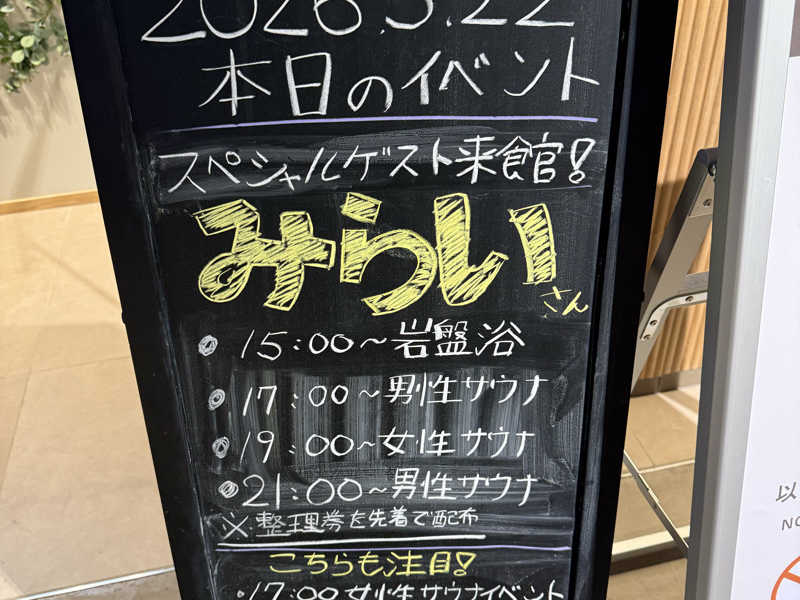 2026.5.22
本日のイベント
スペシャルゲスト来館！
みらい
さん
・15:00～岩盤浴
・17:00～男性サウナ
・19:00～女性サウナ
・21:00～男性サウナ
※整理券を先着で配布
こちらも注目！
・17:00 女性サウナイベント
以
NO